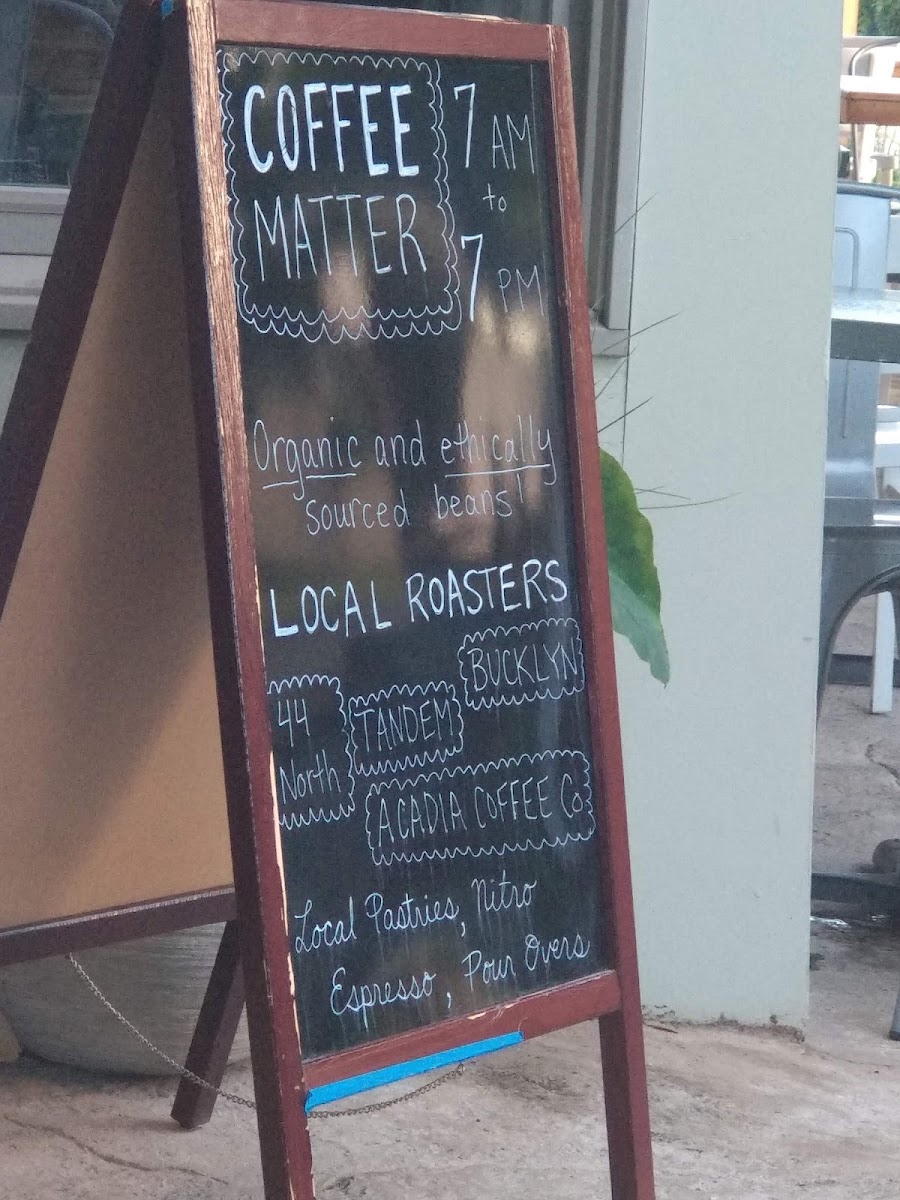 COFFEE
MATTER
7 AM
to
7 PM
Organic and ethically
sourced beans!
LOCAL ROASTERS
BUCKLYN
44
North
TANDEM
ACADIA COFFEE Co.
Local Pastries, Nitro
Espresso, Pour Overs